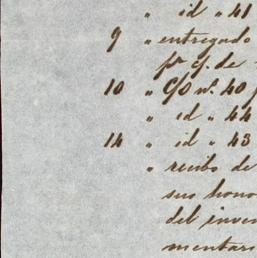 " id " 41
9 " entregado
pr c/. de
10 " C/O nº. 40 p
" id " 44
14 " id " 43
" recibo de
sus hono
del inven
mentari